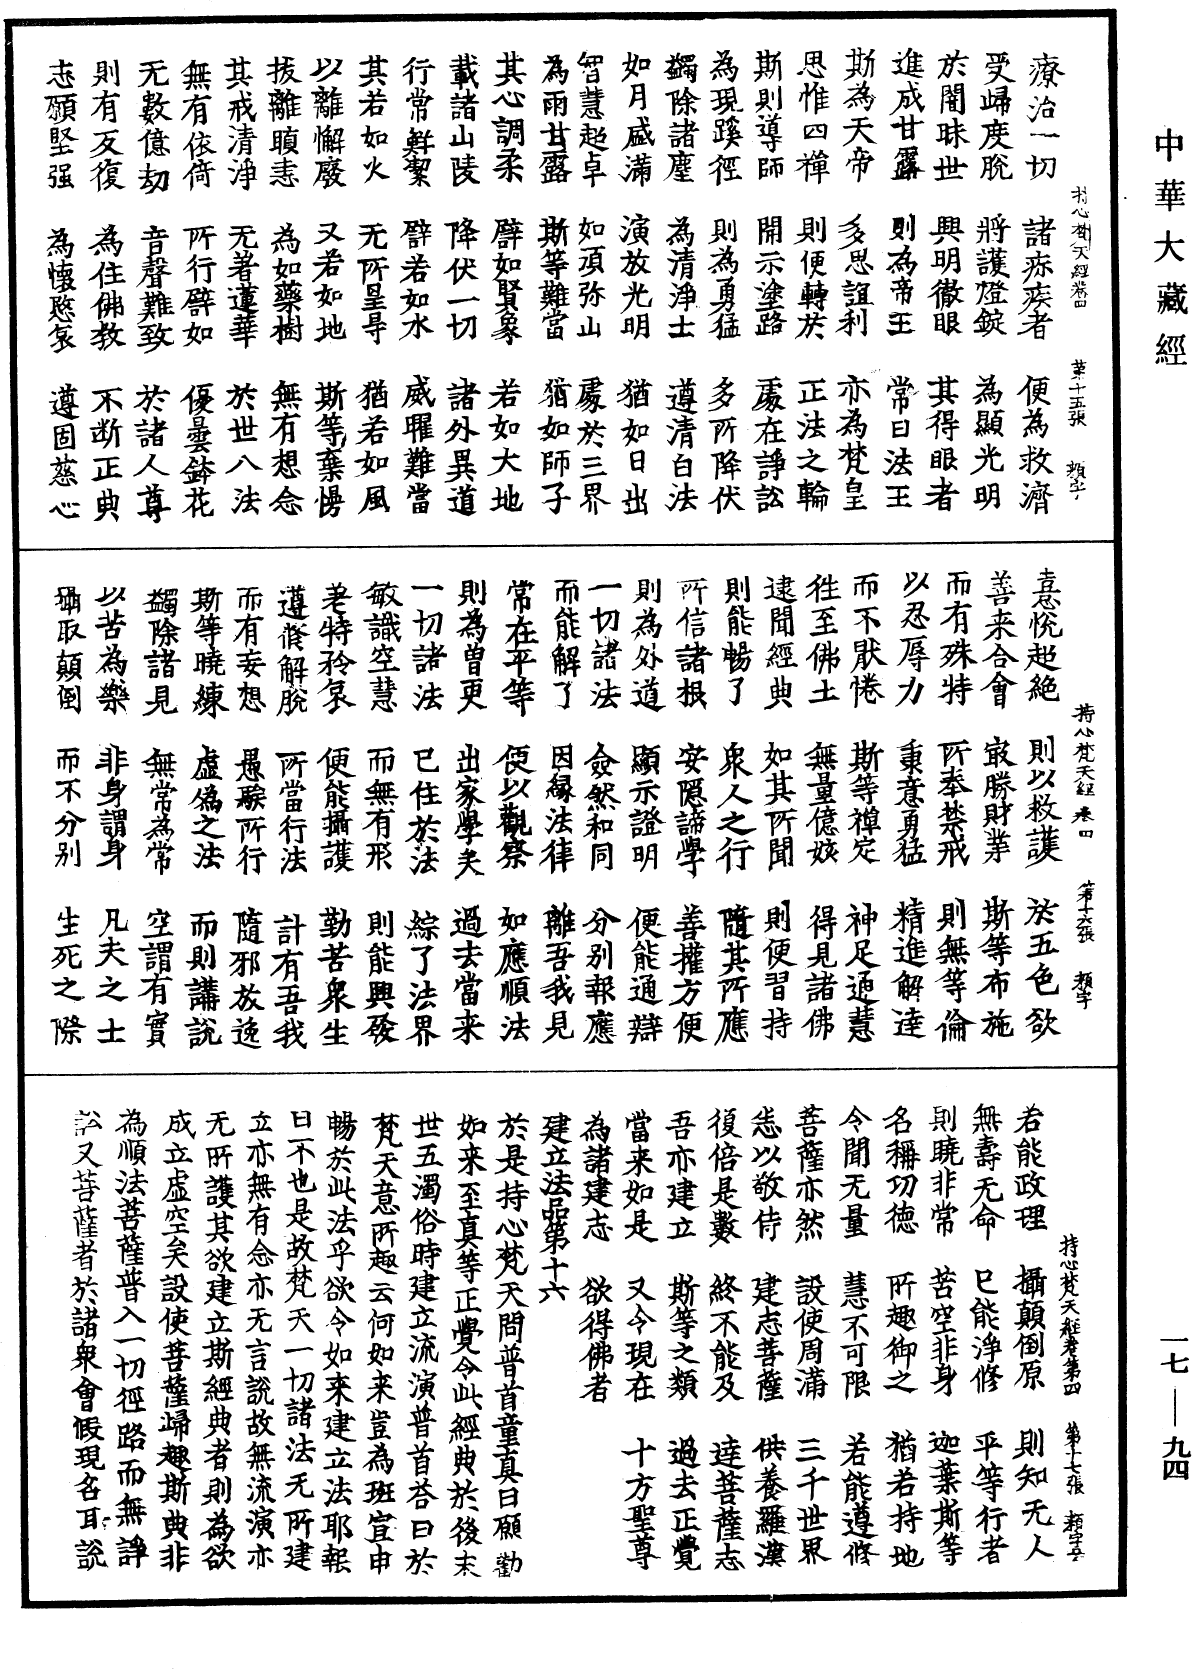 中華大藏經
療治一切　諸疹疾者　便為救濟
受歸度脫　將護燈錠　為顯光明
於闇昧世　興明徹眼　其得眼者
進成甘露　則為帝王　常曰法王
斯為天帝　多思誼利　亦為梵皇
思惟四禪　則便轉於　正法之輪
斯則導師　開示塗路　處在諍訟
為現蹊徑　則為勇猛　多所降伏
蠲除諸塵　為清淨士　遵清白法
如月盛滿　演放光明　猶如日出
智慧超卓　如須弥山　處於三界
為雨甘露　斯等難當　猶如師子
其心調柔　譬如賢象　若如大地
載諸山陵　降伏一切　諸外異道
行常鮮潔　譬若如水　威曜難當
其若如火　无所罣㝵　猶若如風
以離懈廢　又若如地　斯等棄慢
拔離瞋恚　為如藥樹　無有想念
其戒清淨　无著蓮華　於世八法
無有依倚　所行譬如　優曇鉢花
无數億劫　音聲難致　於諸人尊
則有反復　為住佛教　不断正典
志願堅强　為懷愍哀　遵固慈心
持心梵天經卷四　第十五張　頼字
憙悅超絕　則以救護　於五色欲
善来合會　㝡勝財業　斯等布施
而有殊特　所奉禁戒　則無等倫
以忍辱力　秉意勇猛　精進解達
而不猒惓　斯等禪定　神足通慧
往至佛土　無量億姟　得見諸佛
逮聞經典　如其所聞　則便習持
則能暢了　衆人之行　隨其所應
所信諸根　安隱諦學　善權方便
則為外道　顯示證明　便能通辯
一切諸法　僉然和同　分別報應
而能解了　因緣法律　離吾我見
常在平等　便以觀察　如應順法
則為曾更　出家學矣　過去當来
一切諸法　已住於法　綜了法界
敏識空慧　而無有形　則能興發
耄特矜哀　便能攝護　勤苦衆生
遵脩解脫　所當行法　計有吾我
而有妄想　愚騃所行　隨邪放逸
斯等曉練　虛偽之法　而則講說
蠲除諸見　無常為常　空謂有實
以苦為樂　非身謂身　凡夫之士
攝取顛倒　而不分別　生死之際
持心梵天經　卷四　第十六張　頼字
若能政理　攝顛倒原　則知无人
無壽无命　已能淨修　平等行者
則曉非常　苦空非身　迦葉斯等
名稱功德　所趣御之　猶若持地
令聞无量　慧不可限　若能遵修
菩薩亦然　設使周滿　三千世界
恙以敬侍　建志菩薩　供養羅漢
復倍是數　終不能及　達菩薩志
吾亦建立　斯等之類　過去正覺
當来如是　又令現在　十方聖尊
為諸建志　欲得佛者
建立法品第十六
於是持心梵天問普首童真曰願勸
如来至真等正覺令此經典於後末
世五濁俗時建立流演普首荅曰於
梵天意所趣云何如来豈為班宣申
暢於此法乎欲令如来建立法耶報
曰不也是故梵天一切諸法无所建
立亦無有念亦无言說故無流演亦
无所護其欲建立斯經典者則為欲
成立虛空矣設使菩薩歸趣斯典非
為順法菩薩普入一切徑路而無諍
訟又菩薩者於諸衆會假現名耳說
持心梵天經卷第四　第十七張　頼字号
一七—九四